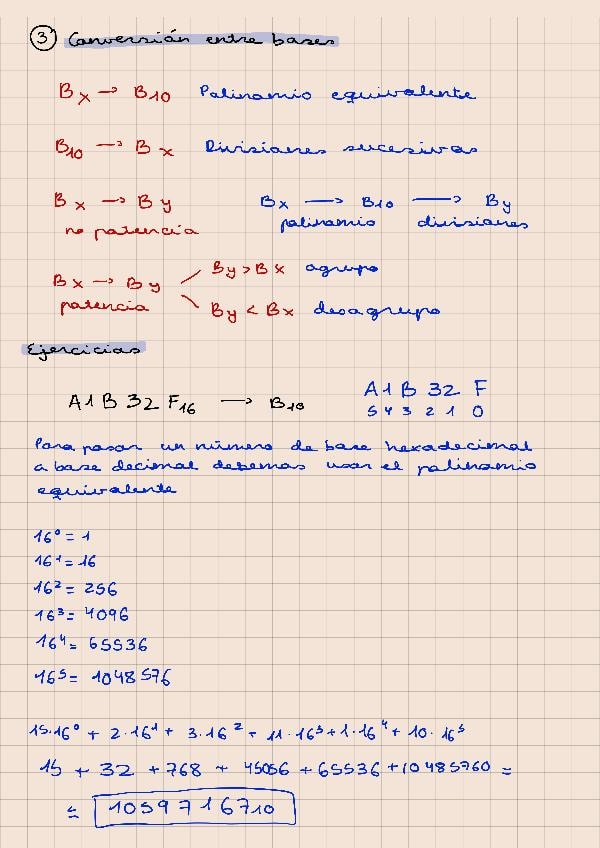 3 Conversión entre bases
Bx → B10 Polinomio equivalente
B10 → Bx Divisiones sucesivas
Bx → By Bx → B10 → By
no potencia polinomio divisiones
Bx → By By > Bx agrupo
potencia By < Bx desagrupo
Ejercicios
A1B32F16 → B10 A1B32F
5 4 3 2 1 0
Para pasar un número de base hexadecimal
a base decimal debemos usar el polinomio
equivalente
16⁰ = 1
16¹ = 16
16² = 256
16³ = 4096
16⁴ = 65536
16⁵ = 1048576
15·16⁰ + 2·16¹ + 3·16² + 11·16³ + 1·16⁴ + 10·16⁵
15 + 32 + 768 + 45056 + 65536 + 10485760 =
= 1059716710